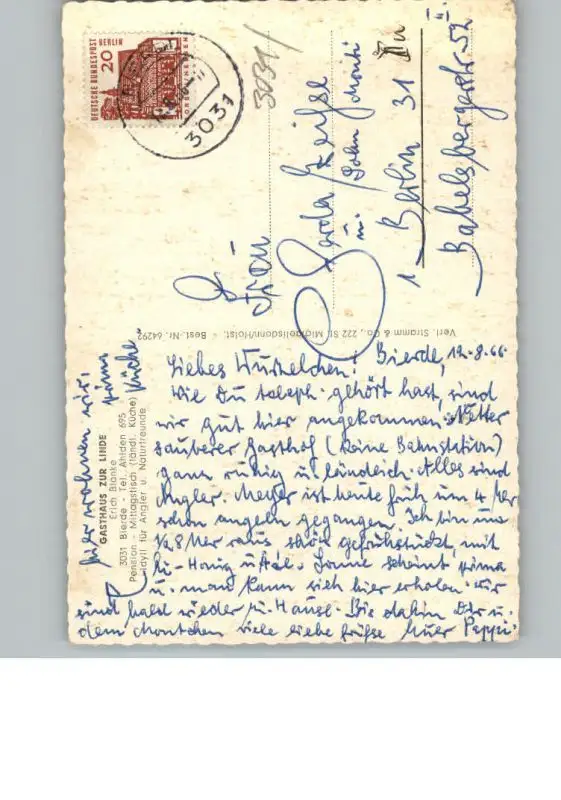 DEUTSCHE BUNDESPOST BERLIN
20
3031
3031/
Frau
Gerda
u. Sohn
1 Berlin 31
Babelsbergerstr. 52
Verl. Stramm & Co., 222 St. Michaelisdonn/Holst. - Best.-Nr. 64292
hier wohnen wir.
prima Küche
GASTHAUS ZUR LINDE
Erich Blanke
3031 Bierde - Tel. Ahlden 695
Pension - Mittagstisch (ländl. Küche)
Idyll für Angler u. Naturfreunde
Bierde, 12.8.66
Liebes !
Wie Du teleph. gehört hast, sind
wir gut hier angekommen. Netter
sauberer Gasthof (keine Bahnstation)
ganz ruhig u. ländlich. Alles sind
Angler. ist heute früh um 4 Uhr
schon angeln gegangen. Ich bin um
1/2 8 Uhr raus schön gefrühstückt, mit
Honig Sonne scheint prima
u. man kann sich hier erholen. Wir
sind bald wieder zu Hause. Bis dahin Dir u.
dem viele liebe Grüße Peppi.